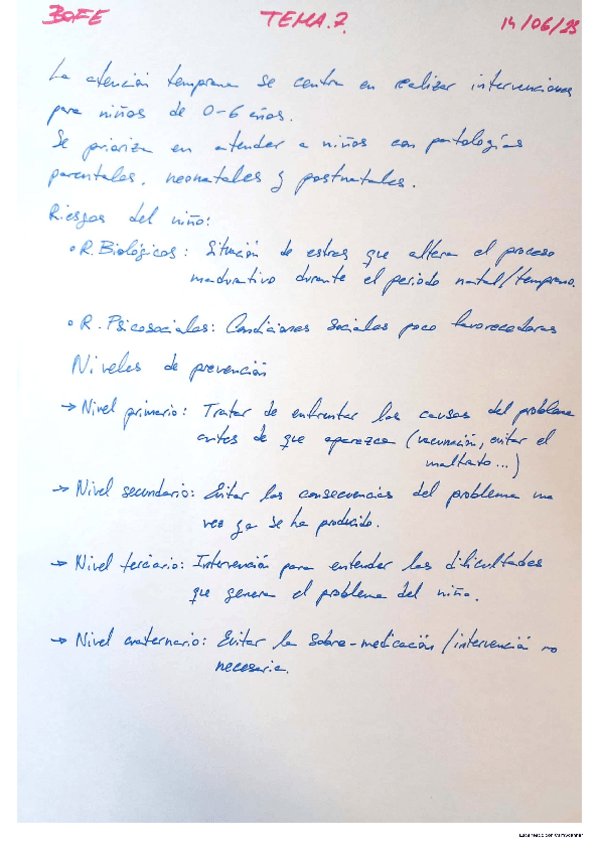 BOFE TEMA.7 14/06/25
La atención temprana se centra en realizar intervenciones
para niños de 0-6 años.
Se prioriza en atender a niños con patologías
parentales, neonatales y postnatales.
Riesgos del niño:
• R. Biológicos: Situación de estres que altera el proceso
madurativo durante el periodo natal/temprano.
• R. Psicosociales: Condiciones sociales poco favorecedoras
Niveles de prevención
→ Nivel primario: Tratar de enfrentar las causas del problema
antes de que aparezca (vacunación, evitar el
maltrato...)
→ Nivel secundario: Evitar las consecuencias del problema una
vez ya se ha producido.
→ Nivel terciario: Intervención para entender las dificultades
que genera el problema del niño.
→ Nivel cuaternario: Evitar la sobre-medicación/intervención no
necesaria.